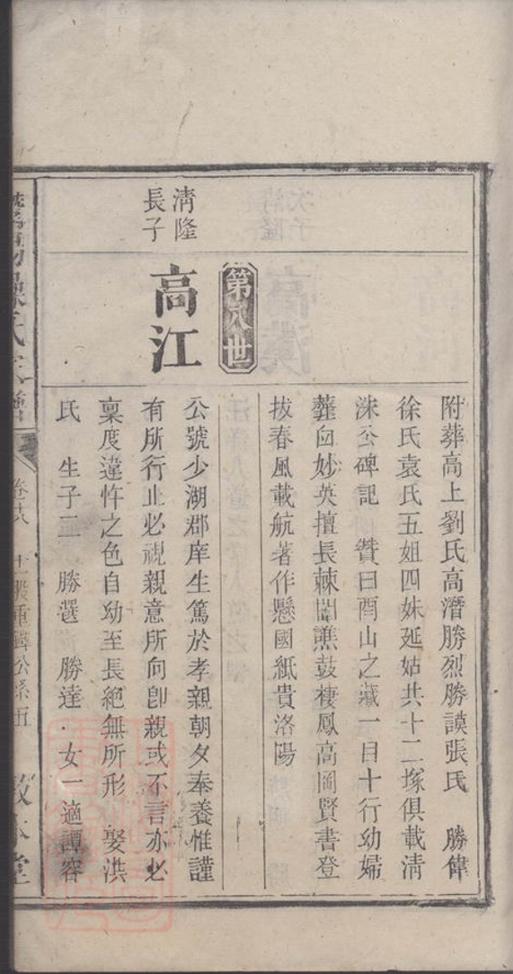 附葬高上劉氏高潛勝烈勝謨張氏　勝偉
徐氏袁氏五姐四妹延姑共十二塚俱載清
洙公碑記　贊曰酉山之藏一目十行幼婦
虀臼妙英擅長棘闈譙鼓棲鳳高岡賢書登
拔春風載航著作懸國紙貴洛陽
第八世
清隆
長子
高江
公號少湖郡庠生篤於孝親朝夕奉養惟謹
有所行止必視親意所向卽親或不言亦必
稟度違忤之色自幼至長絕無所形　娶洪
氏　生子二　勝選　勝達　女一適譚容
氏
卷